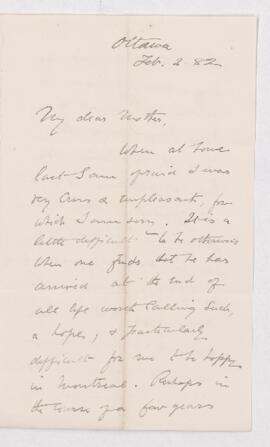 Ottawa
Feb. 2. 82
My dear Mother,
When at home
last I am afraid I was
very cross & unpleasant, for
which I am sorry. It is a
little difficult to be otherwise
when one finds that he has
arrived at the end of
all life worth calling such,
& hopes, & particularly
difficult for me to be happy
in Montreal. Perhaps in
the course of a few years